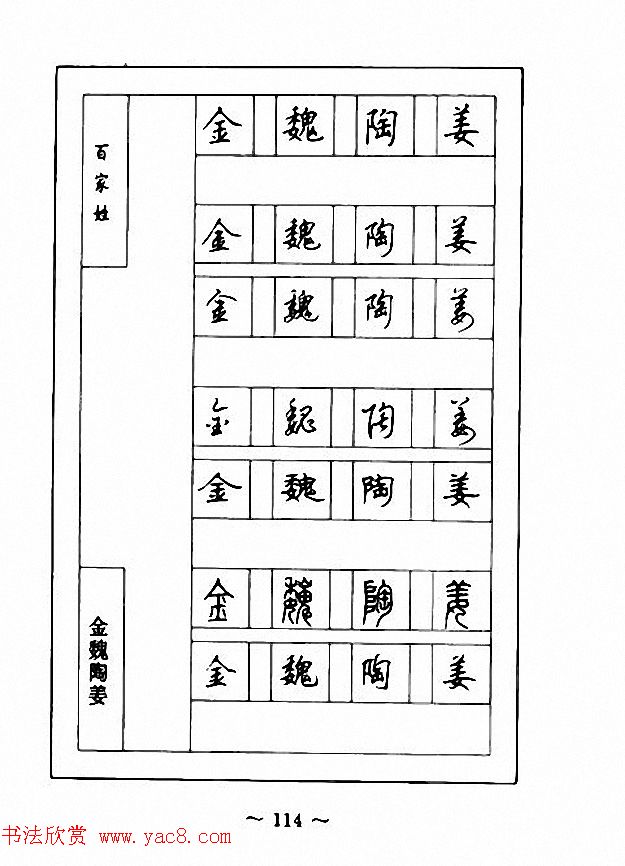 百家姓
金 魏 陶 姜
金 魏 陶 姜
金 魏 陶 姜
金 魏 陶 姜
金 魏 陶 姜
金 魏 陶 姜
金 魏 陶 姜
金魏陶姜
～ 114 ～
书法欣赏 www.yac8.com